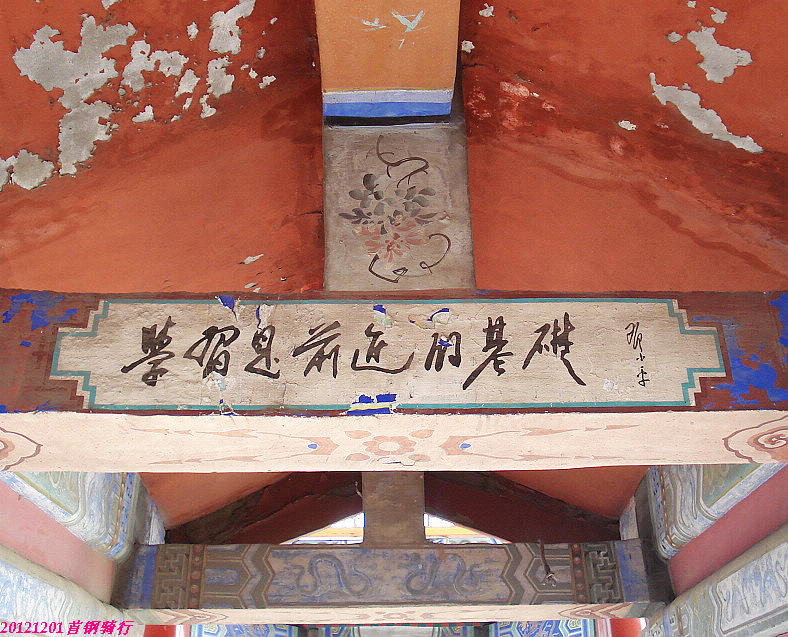 學習是前進的基礎
邓小平
20121201首钢骑行